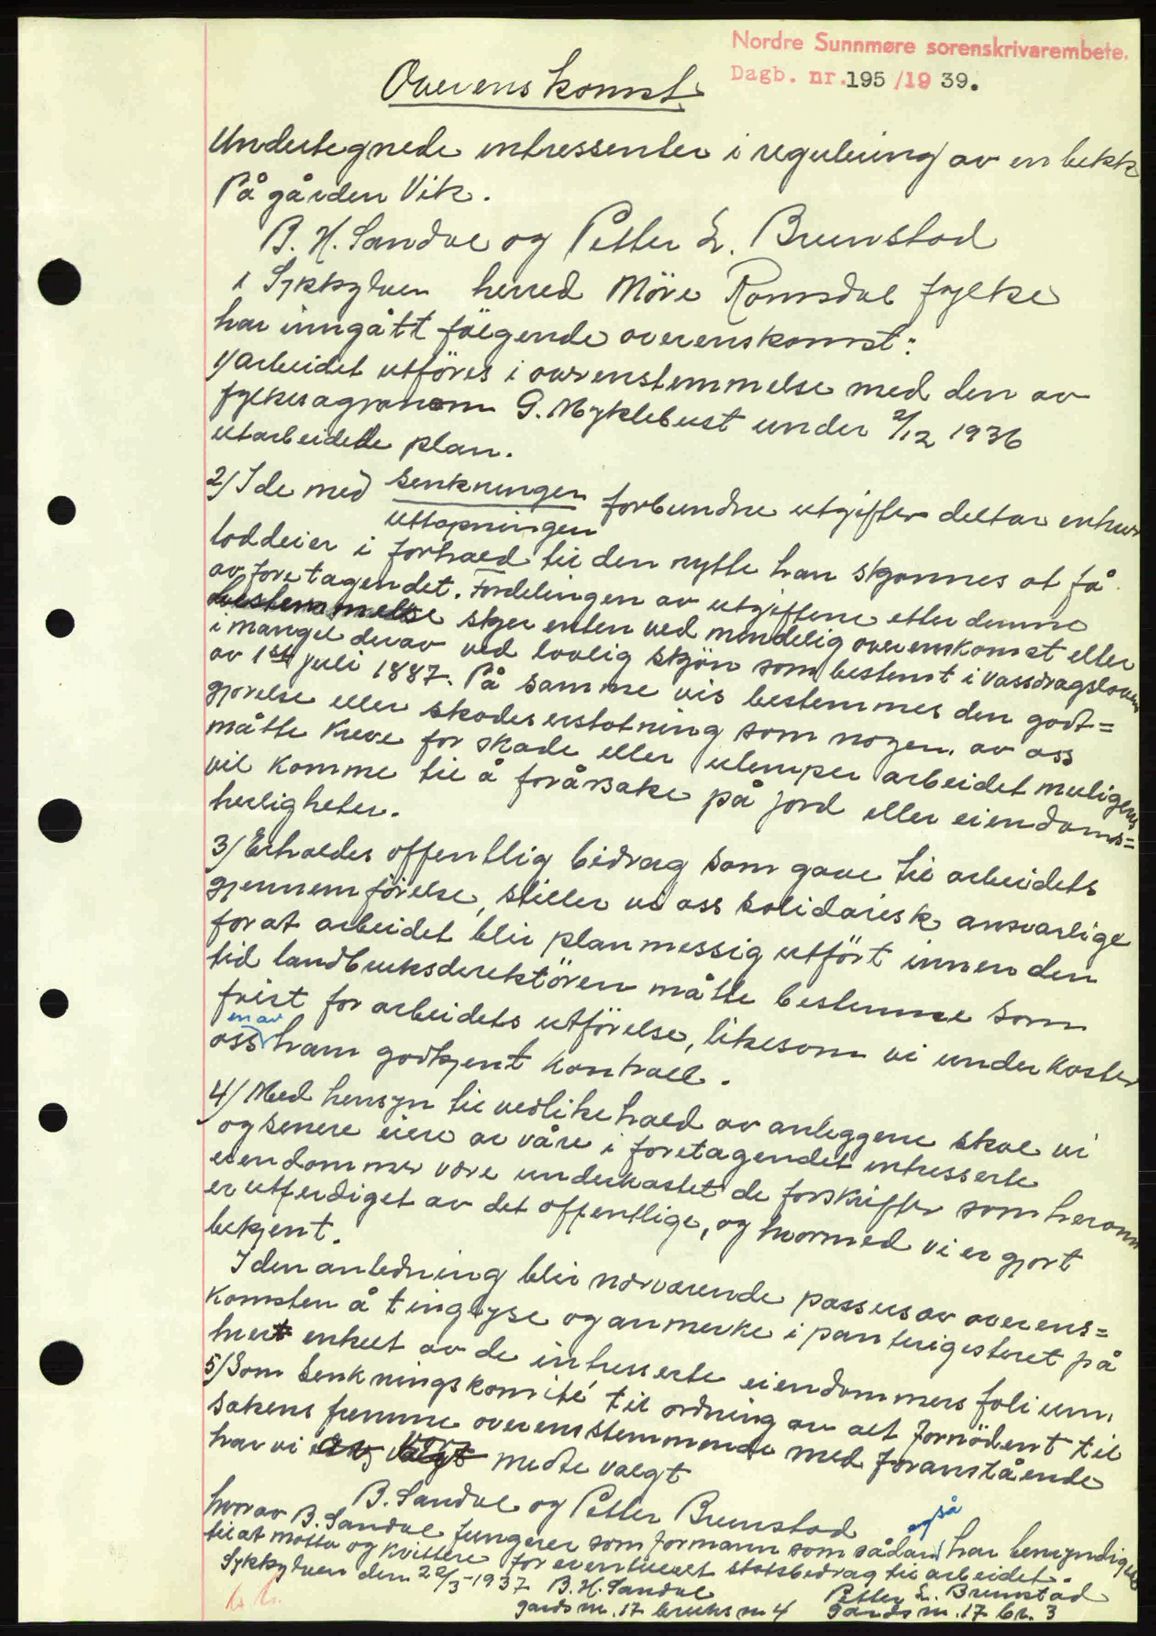 Nordre Sunnmøre sorenskrivarembete.
Dagb. nr. 195 /19 39.
Overenskomst
Undertegnede intressenter i regulering av en bekk
På gården Vik.
B. H. Sandal og Petter L. Brunstad
i Sykkylven herred Möre Romsdal fylke
har inngått fölgende overenskomst:
1/ arbeidet utföres i overenstemmelse med den av
fylkesagronom G. Myklebust under 2/12 1936
utarbeidete plan.
2/ I de med senkningen forbundne utgifter deltar enhver
uttapningen
loddeier i forhold til den nytte han skjønnes at få
av foretagendet. Fordelingen av utgiftene etter denne
bestemmelse skjer enten ved mindelig overenskomst eller
i mangel derav ved lovlig skjön som bestemt i vassdragsloven
av 1st juli 1887. På samme vis bestemmes den godt=
gjörelse eller skadeserstatning som nogen av oss
måtte kreve for skade eller ulemper arbeidet muligens
vil komme til å forårsake på jord eller eiendoms=
herligheter.
3/ Erholdes offentlig bidrag som gave til arbeidets
gjennemförelse, stiller vi oss solidarisk ansvarlige
for at arbeidet blir planmessig utfört innen den
tid landbruksdirektören måtte bestemme som
frist for arbeidets utförelse, likesom vi underkaster
en av
oss ham godkjent kontroll.
4/ Med hensyn til vedlikehold av anleggene skal vi
og senere eiere av våre i foretagendet intresserte
eiendommer være underkastet de forskrifter som herom
er utferdiget av det offentlige, og hvormed vi er gjort
bekjent.
I den anledning blir nærværende passus av overens=
komsten å tinglyse og anmerke i panteregisteret på
hvert enkelt av de intresserte eiendommers folium.
5/ Som Senkningskomité til ordning av alt fornödent til
sakens fremme overenstemmende med foranstående
har vi valgt
B. Sandal og Petter Brunstad
hvorav B. Sandal fungerer som formann som sådan også har bemyndigelse
til at motta og kvittere for eventuelt statsbidrag til arbeidet.
Sykkylven den 22/3-1937 B. H. Sandal Petter L. Brunstad
gards nr. 17 bruks nr 4 gards nr. 17 br. 3